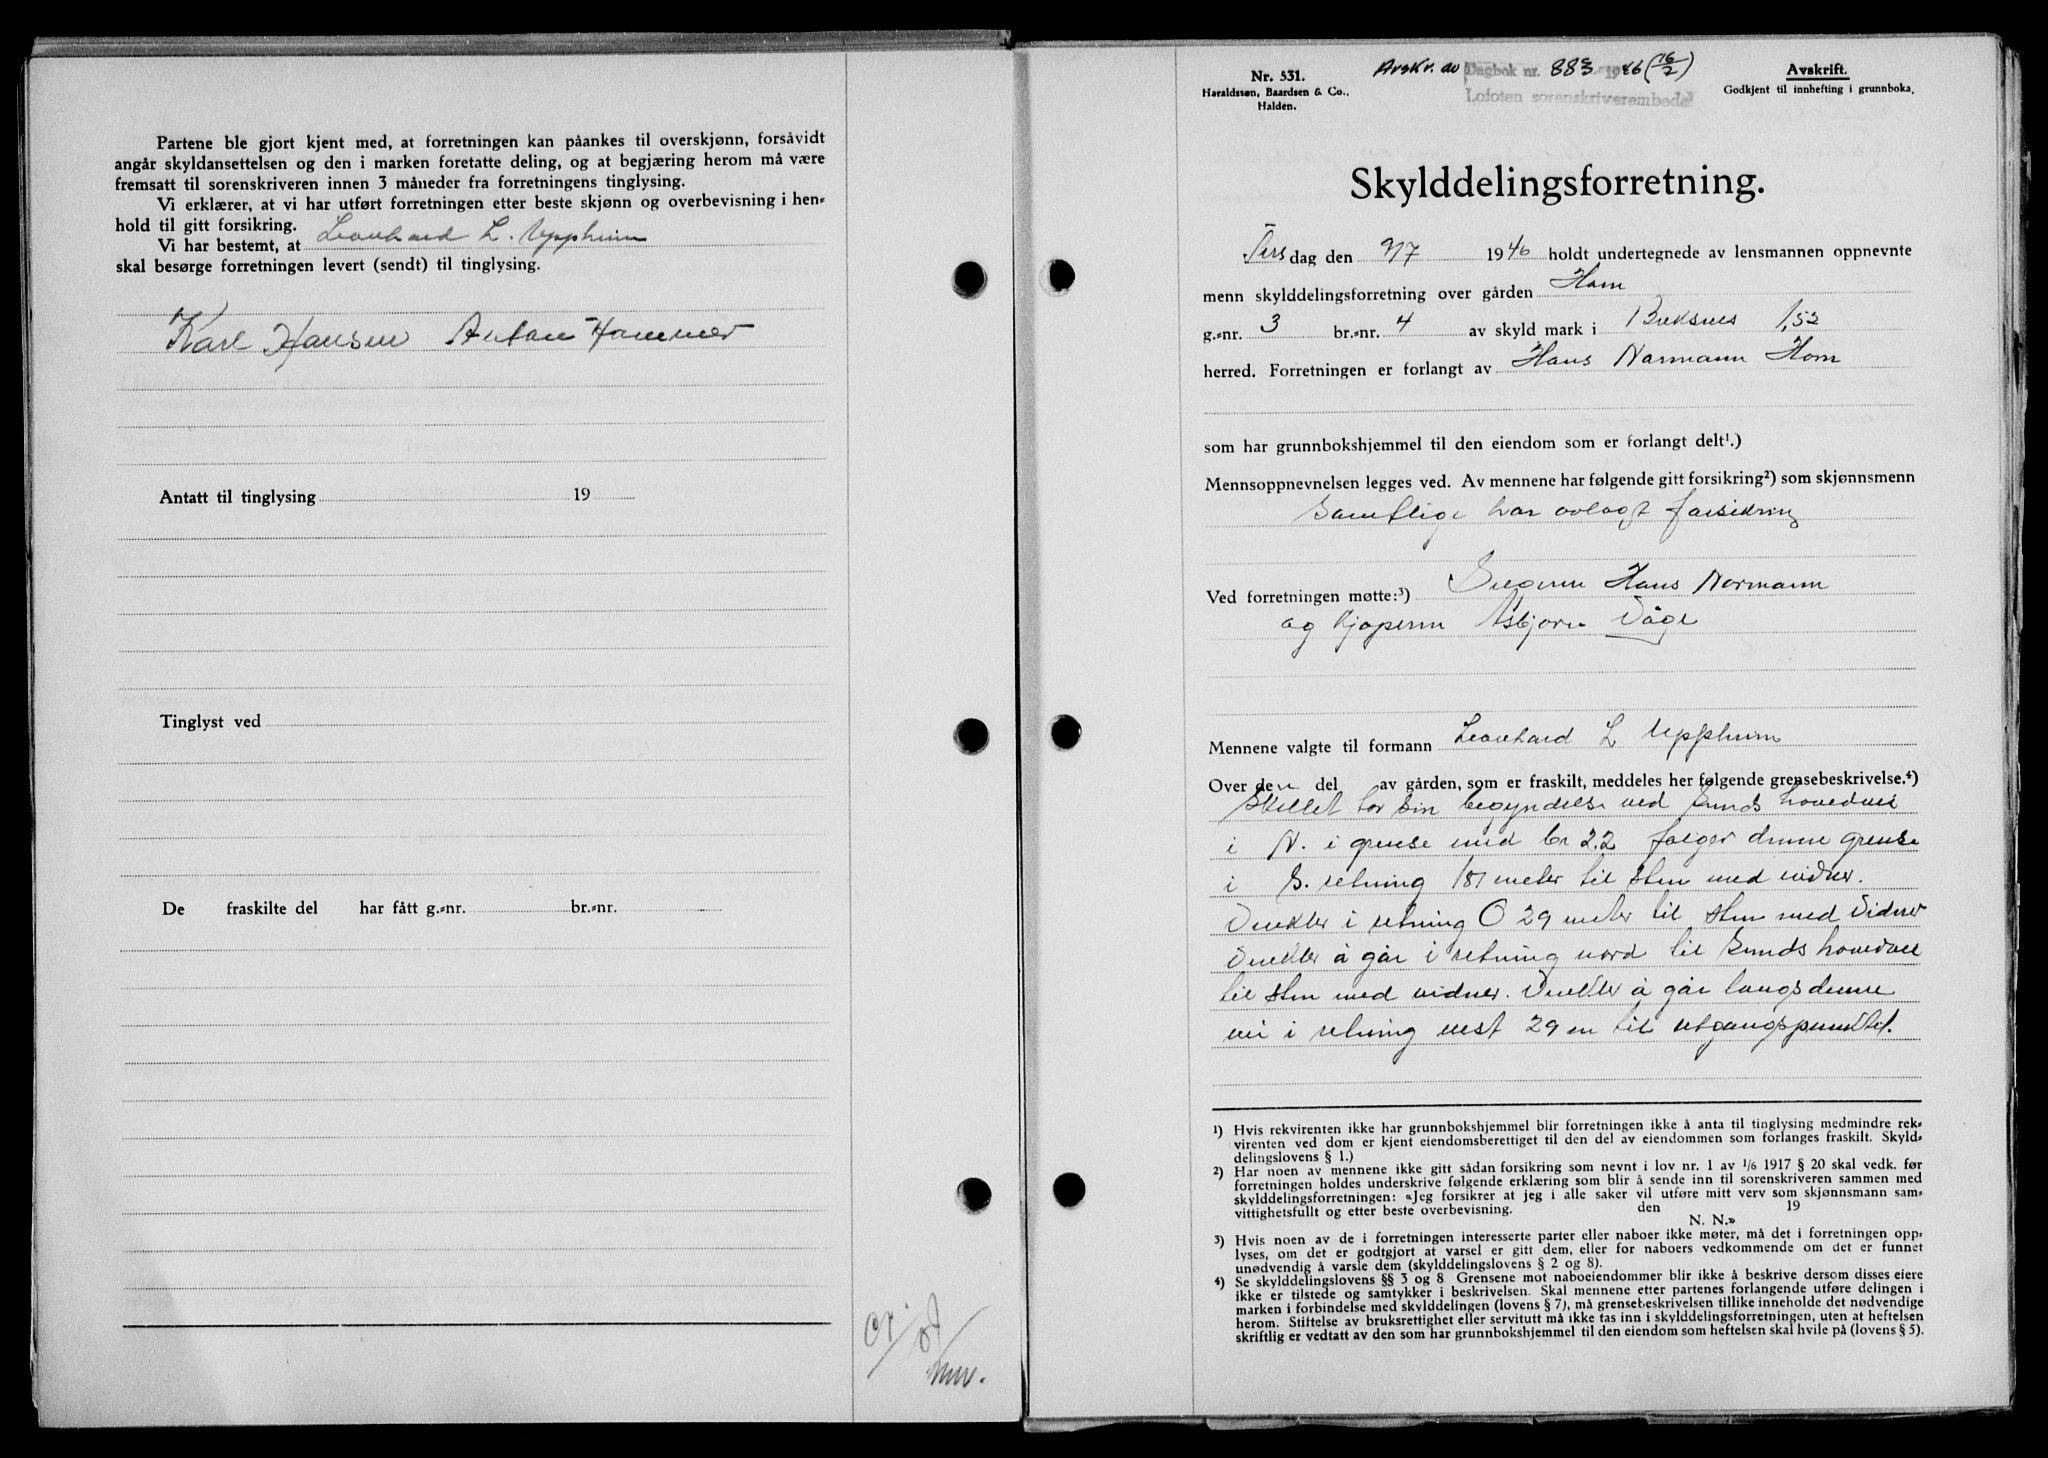 Partene ble gjort kjent med, at forretningen kan påankes til overskjønn, forsåvidt
angår skyldansettelsen og den i marken foretatte deling, og at begjæring herom må være
fremsatt til sorenskriveren innen 3 måneder fra forretningens tinglysing.
Vi erklærer, at vi har utført forretningen etter beste skjønn og overbevisning i hen-
hold til gitt forsikring.
Vi har bestemt, at Leonhard L. Uppheim
skal besørge forretningen levert (sendt) til tinglysing.
Karl Hansen Anton Hammer
Antatt til tinglysing 19
Tinglyst ved
De fraskilte del har fått g.-nr. br.-nr.
Nr. 531.
Haraldssøn, Baardsen & Co.,
Halden.
Avskr. av Dagbok nr. 883 1946 (16/7)
Lofoten sorenskriverembede
Avskrift.
Godkjent til innhefting i grunnboka.
Skylddelingsforretning.
Tirsdag den 9/7 1946 holdt undertegnede av lensmannen oppnevnte
menn skylddelingsforretning over gården Hom
g.-nr. 3 br.-nr. 4 av skyld mark i Buksnes 1,52
herred. Forretningen er forlangt av Hans Normann Hom
som har grunnbokshjemmel til den eiendom som er forlangt delt¹.)
Mennsoppnevnelsen legges ved. Av mennene har følgende gitt forsikring²) som skjønnsmenn
Samtlige har avlagt forsikring
Ved forretningen møtte:³) Selgeren Hans Normann
og kjøperen Asbjørn Våge
Mennene valgte til formann Leonhard L Uppheim
Over den del av gården, som er fraskilt, meddeles her følgende grensebeskrivelse.⁴)
Skillet tar sin begyndelse ved Sunds hovedvei
i N. i grense med br 22 følger denne grense
i S. retning 181 meter til sten med vidner.
Vinkler i retning O 29 meter til sten med vidner
Vinkler å går i retning nord til Sunds hovedvei
til sten med vidner. Vinkler å går langs denne
vei i retning vest 29 m til utgangspunktet.
¹) Hvis rekvirenten ikke har grunnbokshjemmel blir forretningen ikke å anta til tinglysing medmindre rek-
virenten ved dom er kjent eiendomsberettiget til den del av eiendommen som forlanges fraskilt. Skyld-
delingslovens § 1.)
²) Har noen av mennene ikke gitt sådan forsikring som nevnt i lov nr. 1 av 1/6 1917 § 20 skal vedk. før
forretningen holdes underskrive følgende erklæring som blir å sende inn til sorenskriveren sammen med
skylddelingsforretningen: «Jeg forsikrer at jeg i alle saker vil utføre mitt verv som skjønnsmann sam-
vittighetsfullt og etter beste overbevisning. den 19
N. N.»
³) Hvis noen av de i forretningen interesserte parter eller naboer ikke møter, må det i forretningen opp-
lyses, om det er godtgjort at varsel er gitt dem, eller for naboers vedkommende om det er funnet
unødvendig å varsle dem (skylddelingslovens § 2 og 8).
⁴) Se skylddelingslovens §§ 3 og 8. Grensene mot naboeiendommer blir ikke å beskrive dersom disses eiere
ikke er tilstede og samtykker i beskrivelsen. Skal mennene etter partenes forlangende utføre delingen i
marken i forbindelse med skylddelingen (lovens § 7), må grensebeskrivelsen tillike inneholde det nødvendige
herom. Stiftelse av bruksrettighet eller servitutt må ikke tas inn i skylddelingsforretningen, uten at heftelsen
skriftlig er vedtatt av den som har grunnbokshjemmel til den eiendom som heftelsen skal hvile på (lovens § 5).